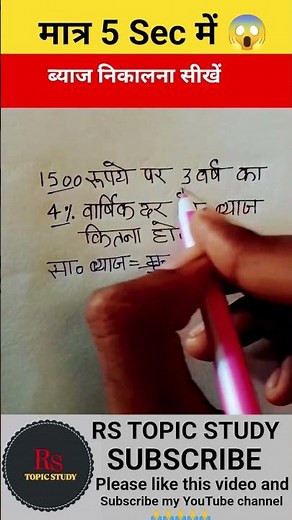 मात्र 5 Sec में 😱
ब्याज निकालना सीखें
1500 रूपये पर 3 वर्ष का
4% वार्षिक दर ब्याज
कितना
सा० ब्याज =
RS
TOPIC STUDY
RS TOPIC STUDY
SUBSCRIBE
Please like this video and
Subscribe my YouTube channel